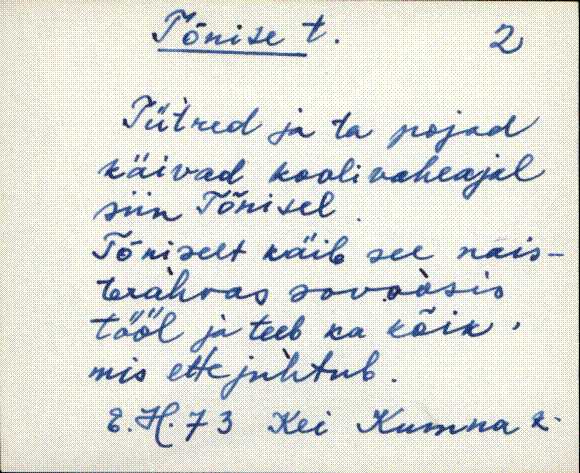 Tõnise t. 2
Tütred ja ta pojad
käivad koolivaheajal
siin Tõnisel.
Tõniselt käib see nais-
terahvas sovoosis
tööl ja teeb ka kõik,
mis ette juhtub.
E.H. 73 Kei Kumna k.